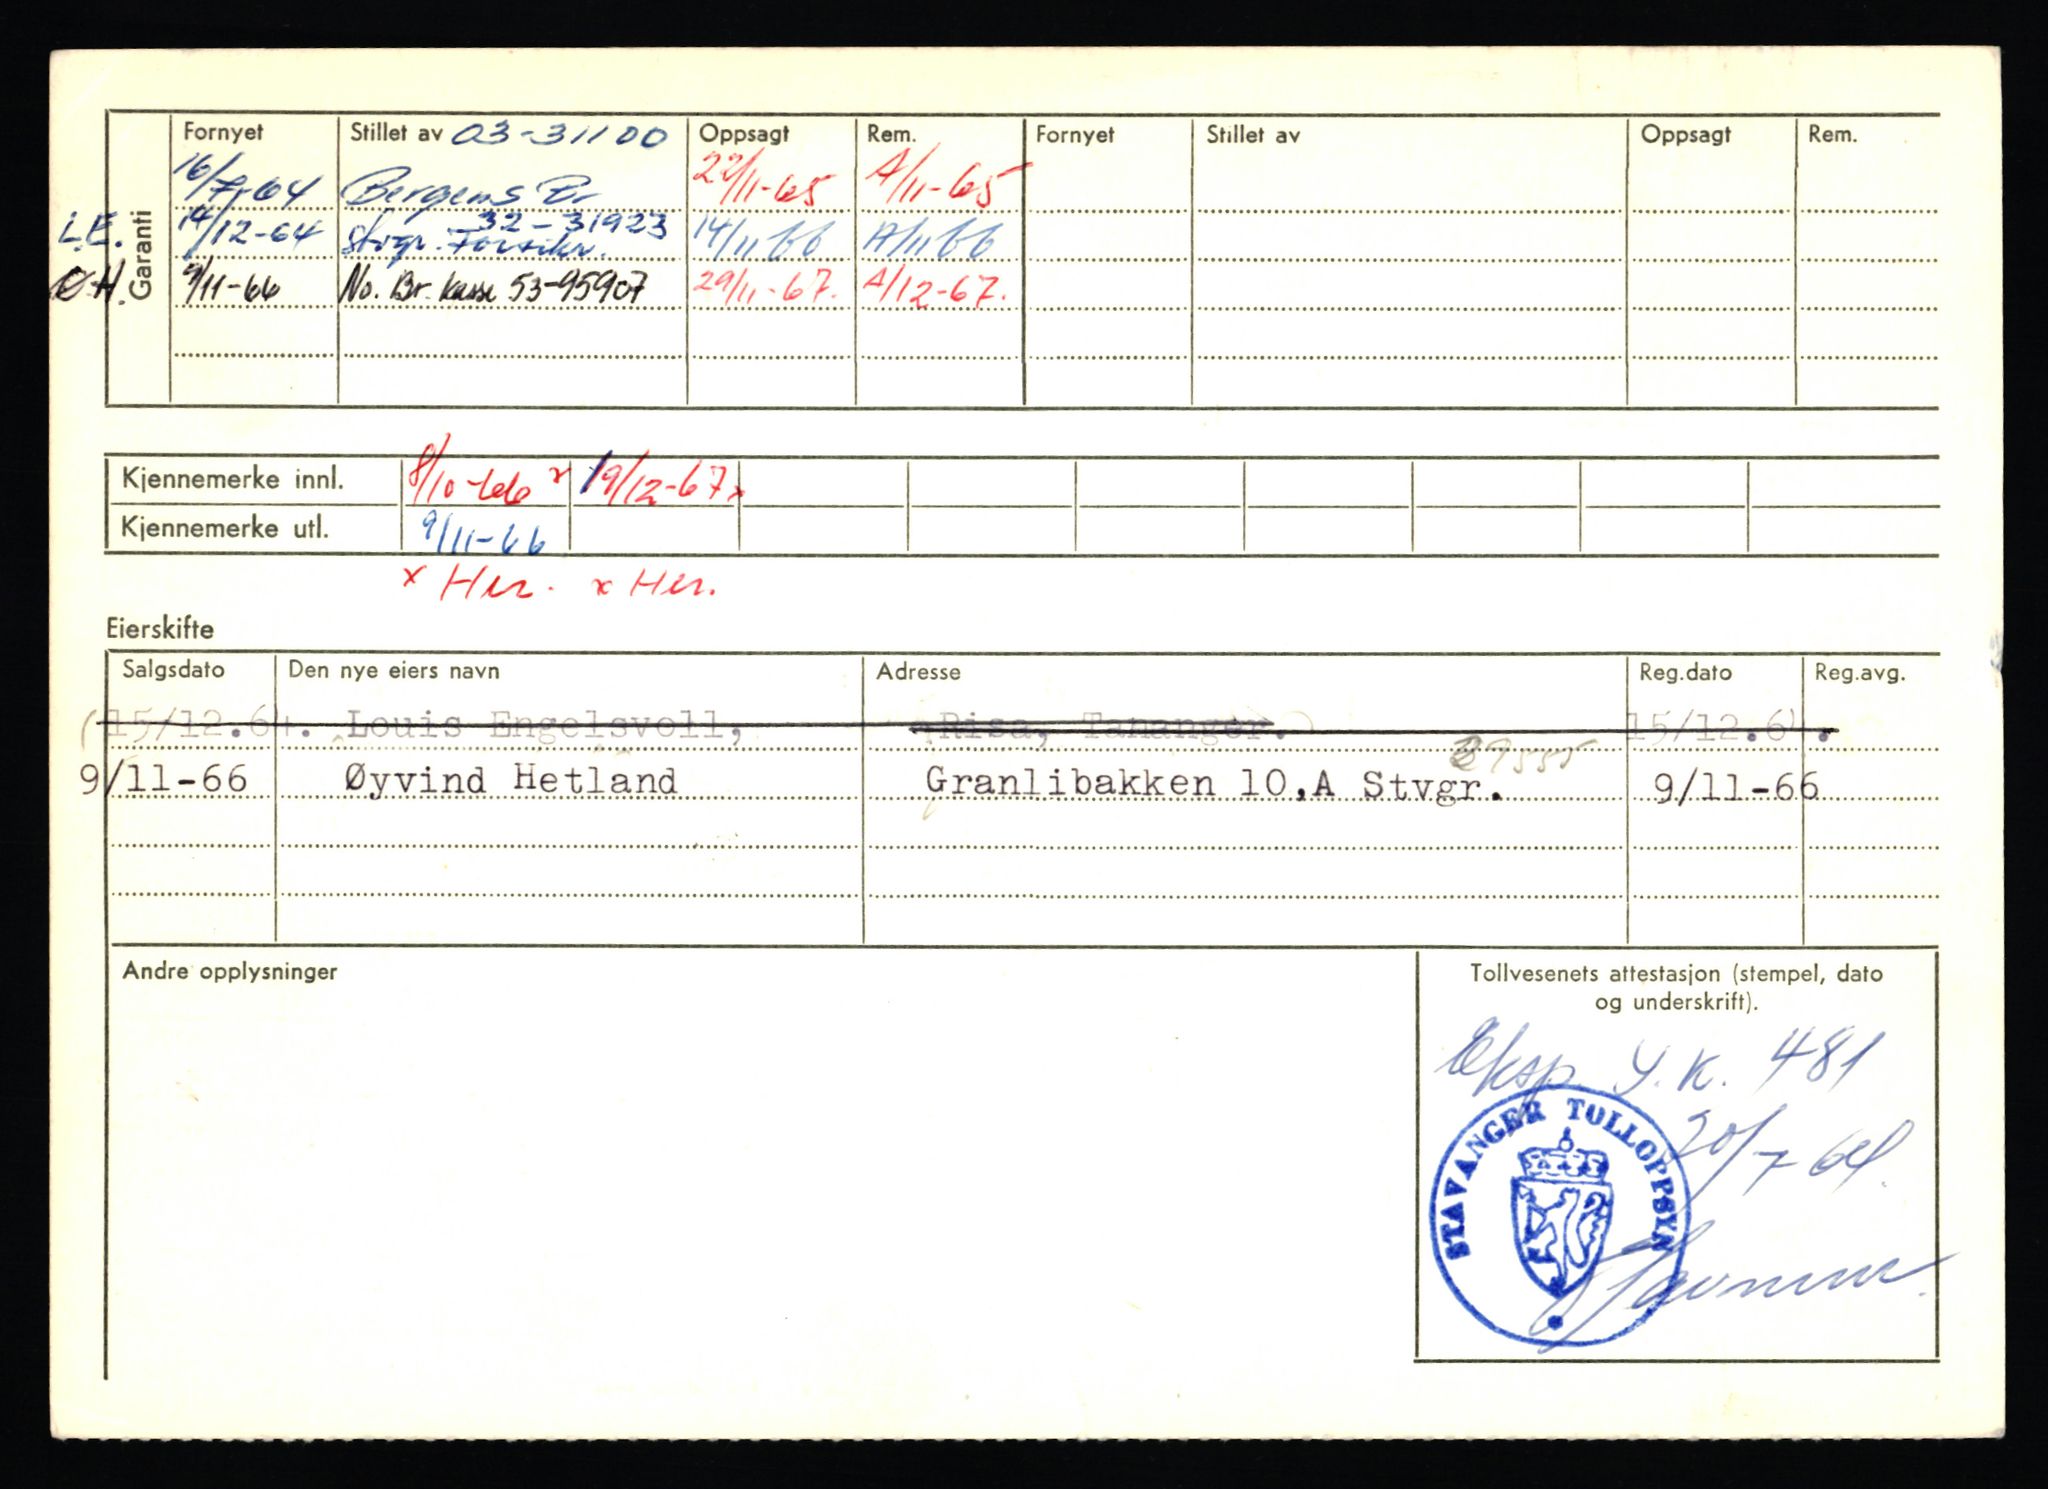 Garanti
Fornyet Stillet av 03-31100 Oppsagt Rem. Fornyet Stillet av Oppsagt Rem.
16/7-64 Bergens Br 22/11-65 A/11-65
L.E. 14/12-64 Stvgr. Forsikr. 32-31923 14/11 66 A/11 66
Ø.H. 9/11-66 No. Br. kasse 53-95907 29/11-67. A/12-67.
Kjennemerke innl. 8/10-66 x 19/12-67 x
Kjennemerke utl. 9/11-66
x Her. x Her.
Eierskifte
Salgsdato Den nye eiers navn Adresse Reg.dato Reg.avg.
(15/12.64. Louis Engelsvoll, Risa, Tananger.) 15/12.64.
9/11-66 Øyvind Hetland Granlibakken 10,A Stvgr. 9/11-66
Andre opplysninger
Tollvesenets attestasjon (stempel, dato
og underskrift).
Eksp. Y.K. 481
20/7 64.
STAVANGER TOLLOPPSYN